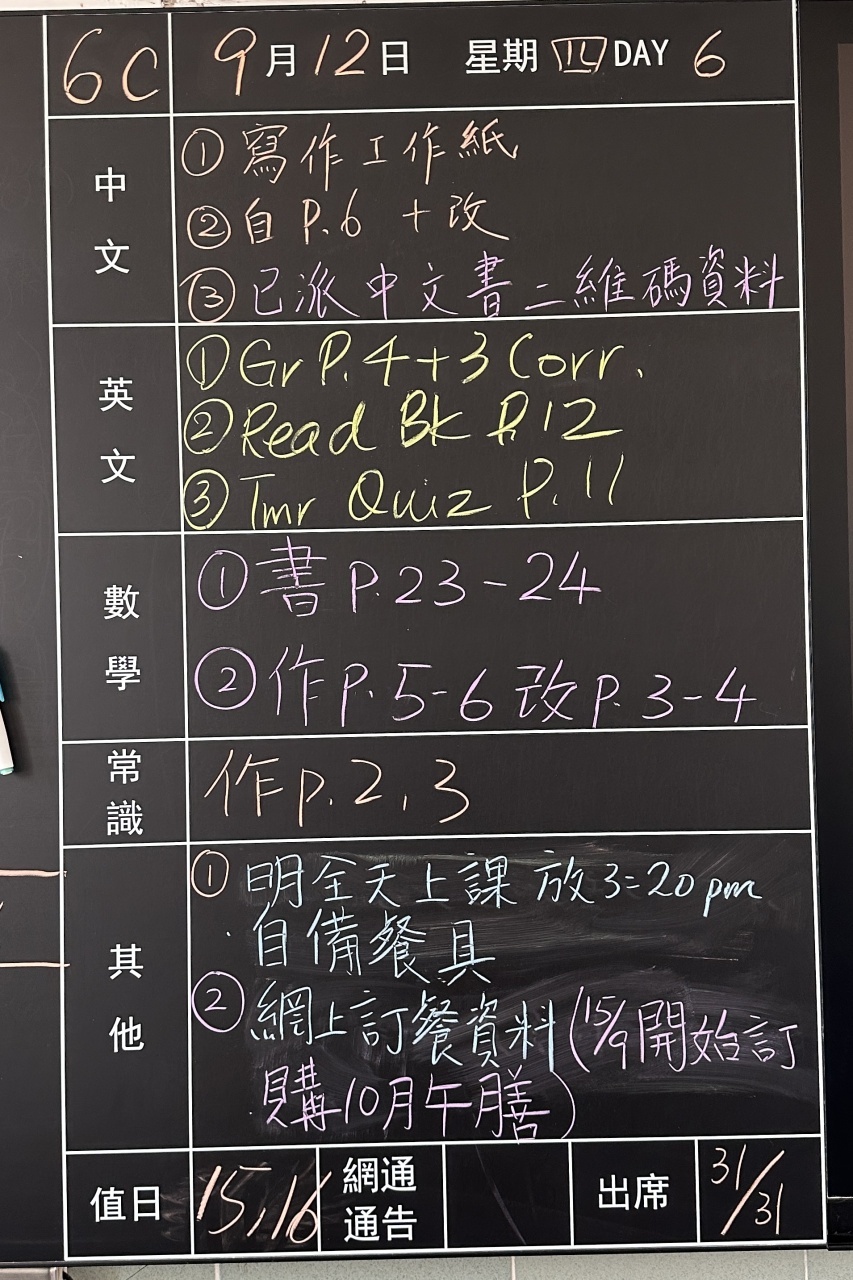 6C 9月12日 星期四DAY 6
中文
①寫作工作紙
②自 P.6 +改
③已派中文書二維碼資料
英文
①Gr P.4+3 Corr.
②Read Bk P.12
③Tmr Quiz P.11
數學
①書P.23-24
②作P.5-6 改P.3-4
常識
作p.2,3
其他
①明全天上課 放3:20pm
自備餐具
②網上訂餐資料(15/9開始訂
購10月午膳)
值日 15,16 網通通告 出席 31/31